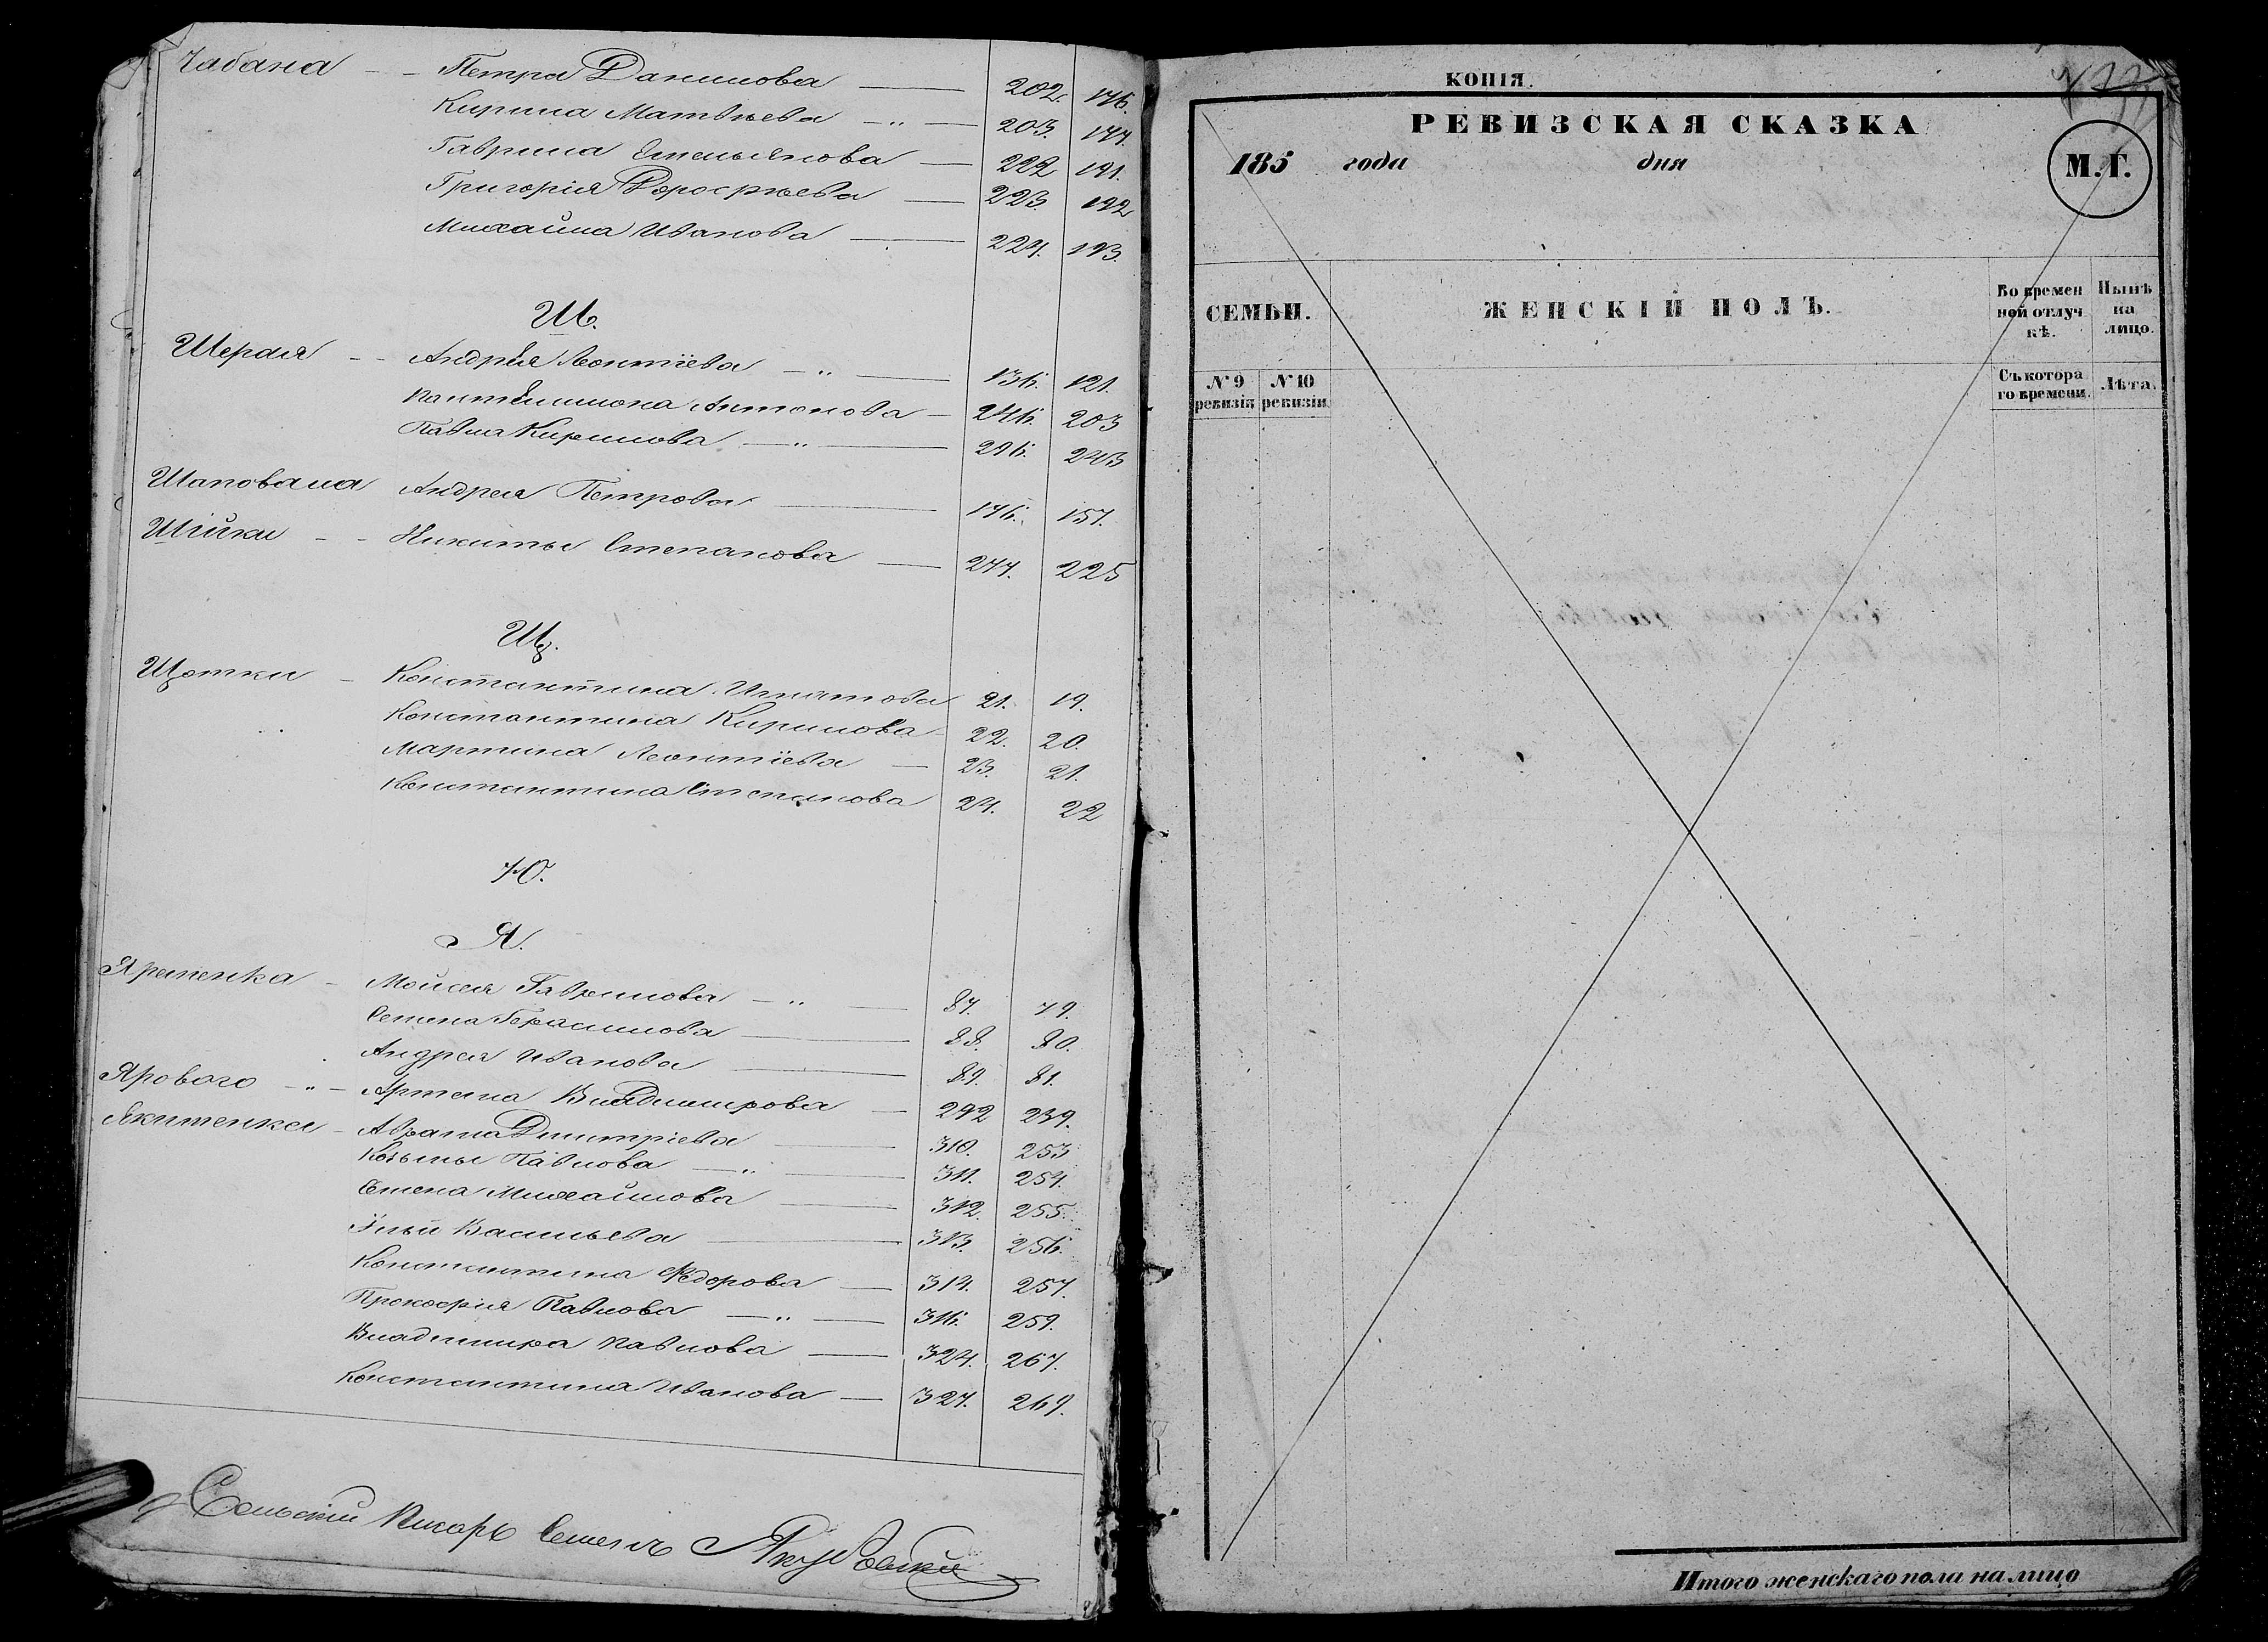 Чабана - - Петра Данилова — 202. 176.
Кирила Матвѣева - " - 203. 177.
Гаврила Емельянова — 222 191.
Григорія Дорофѣева — 223. 192
Михайла Иванова — 224. 193.
Ш.
Шерая - - Андрѣя Леонтіева - " — 136. 121.
Пантелимона Антонова — 246. 203
Павла Кирилова - " — 296. 243
Шаповала Андрея Петрова — 176. 157.
Шійки - - Никиты Степанова — 277. 225
Щ.
Щотки - Константина Игнатова 21. 19.
Константина Кирилова 22. 20.
Мартина Леонтіева — 23. 21.
Константина Степанова 24. 22
Ю.
Я.
Яременка - Мойсея Гаврилова - " — 87. 79.
Семена Герасимова — 88. 80.
Андрея Иванова — 89. 81.
Ярового - " - Артема Владимирова — 292 239.
Якименка - Абрама Дмитріева — 310. 253
Козьмы Павлова - " — 311. 254.
Семена Михайлова — 312. 255.
Ильи Васильева — 313. 256.
Константина Федорова — 314. 257.
Прокофія Павлова - " — 316. 259.
Владимира Павлова — 324. 267.
Константина Иванова — 327. 269.
Сельскій Писарь Семенъ
КОПІЯ.
РЕВИЗСКАЯ СКАЗКА
185 года дня М. Г.
СЕМЬИ. ЖЕНСКІЙ ПОЛЪ. Во времен ной отлуч кѣ. Нынѣ на лицо.
№ 9 ревизіи № 10 ревизіи. Съ котора го времени. Лѣта.
Итого женскаго пола на лицо